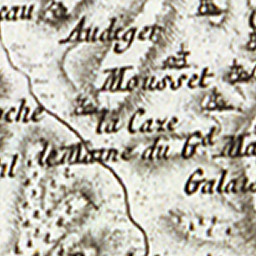 eau
Audeger
Mousset
oche
la Caze
le Maine du Gd Ma
al
Galais